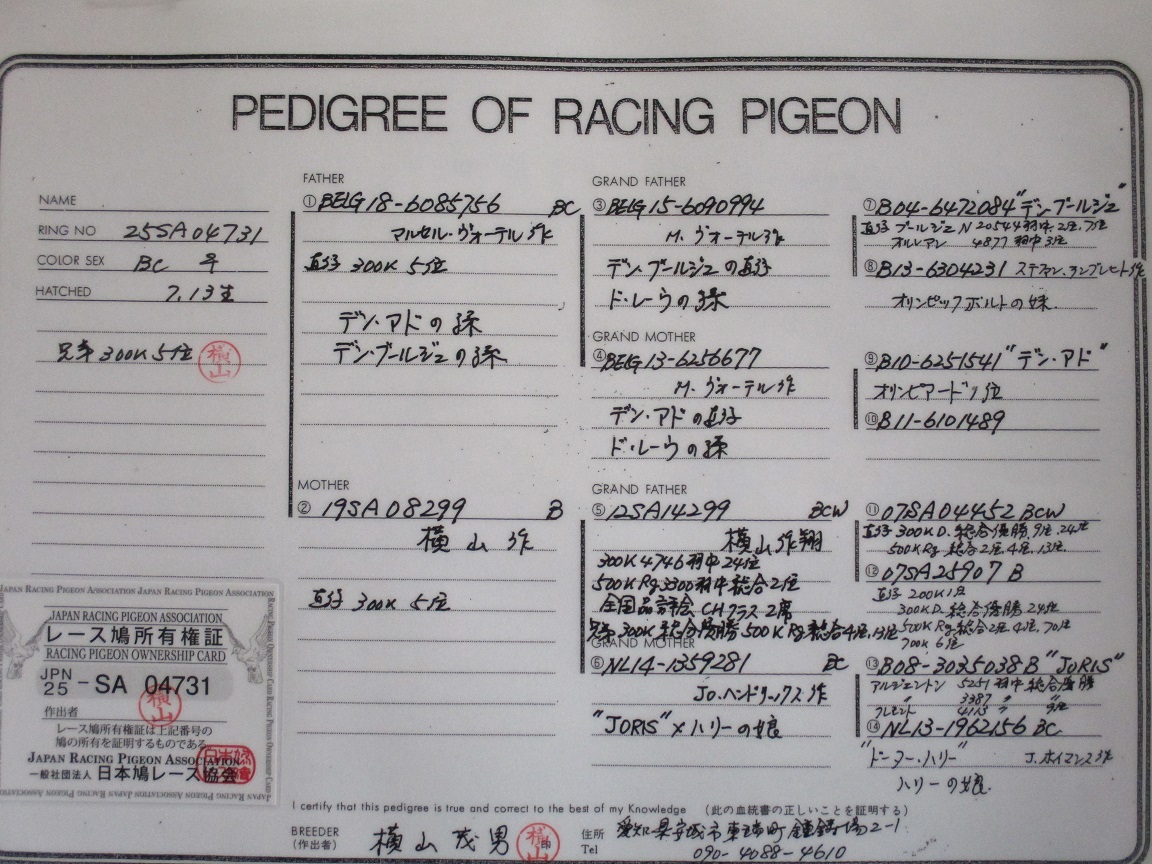 PEDIGREE OF RACING PIGEON
NAME
RING NO 25SA04731
COLOR SEX BC ♀
HATCHED 7.13生
兄弟 300K 5位 横山
FATHER
①BELG 18-6085756 BC
マルセル・ヴォーテルズ作
直仔 300K 5位
デン・アドの孫
デン・ブールジュの孫
MOTHER
② 19SA08299 B
横山作
直仔 300K 5位
GRAND FATHER
③BELG 15-6090994
M. ヴォーテルズ作
デン・ブールジュの直仔
ド・レーウの孫
GRAND MOTHER
④BELG 13-6256677
M. ヴォーテルズ作
デン・アドの直仔
ド・レーウの孫
GRAND FATHER
⑤12SA14299 BCW
横山作翔
300K 4746羽中 24位
500K Rg. 3300羽中 総合2位
全国品評会 CHクラス 2席
兄弟 300K 総合優勝 500K Rg. 総合4位, 13位
GRAND MOTHER
⑥NL14-1359281 BC
Jo.ヘンドリックス作
"JORIS"×ハリーの娘
⑦B04-6472084 "デン・ブールジュ"
直仔 ブールジュN 20544羽中 2位, 7位
オルレアン 4877羽中 3位
⑧B13-6304231 ステファン・ランブレヒト作
オリンピックボルトの妹
⑨B10-6251541 "デン・アド"
オリンピアード 1位
⑩B11-6101489
⑪07SA04452 BCW
直仔 300K D. 総合優勝, 9位, 24位
500K Rg. 総合2位, 4位, 13位
⑫07SA25907 B
直仔 200K 1位
300K D. 総合優勝 24位
500K Rg. 総合2位, 4位, 70位
700K 6位
⑬B08-3035038 B "JORIS"
アルジェントン 5251羽中 総合優勝
3387 〃 〃
⑭NL13-1962156 BC
"ドーター・ハリー" J.ホイマンス作
ハリーの娘
JAPAN RACING PIGEON ASSOCIATION
レース鳩所有権証
RACING PIGEON OWNERSHIP CARD
JPN 25 - SA 04731
横山
作出者
レース鳩所有権証は上記番号の
鳩の所有を証明するものである
JAPAN RACING PIGEON ASSOCIATION
一般社団法人 日本鳩レース協会
I certify that this pedigree is true and correct to the best of my Knowledge (此の血統書の正しいことを証明する)
BREEDER (作出者) 横山茂男 印
住所 愛知県安城市東端町鐘鋳場2-1
Tel 090-4088-4610